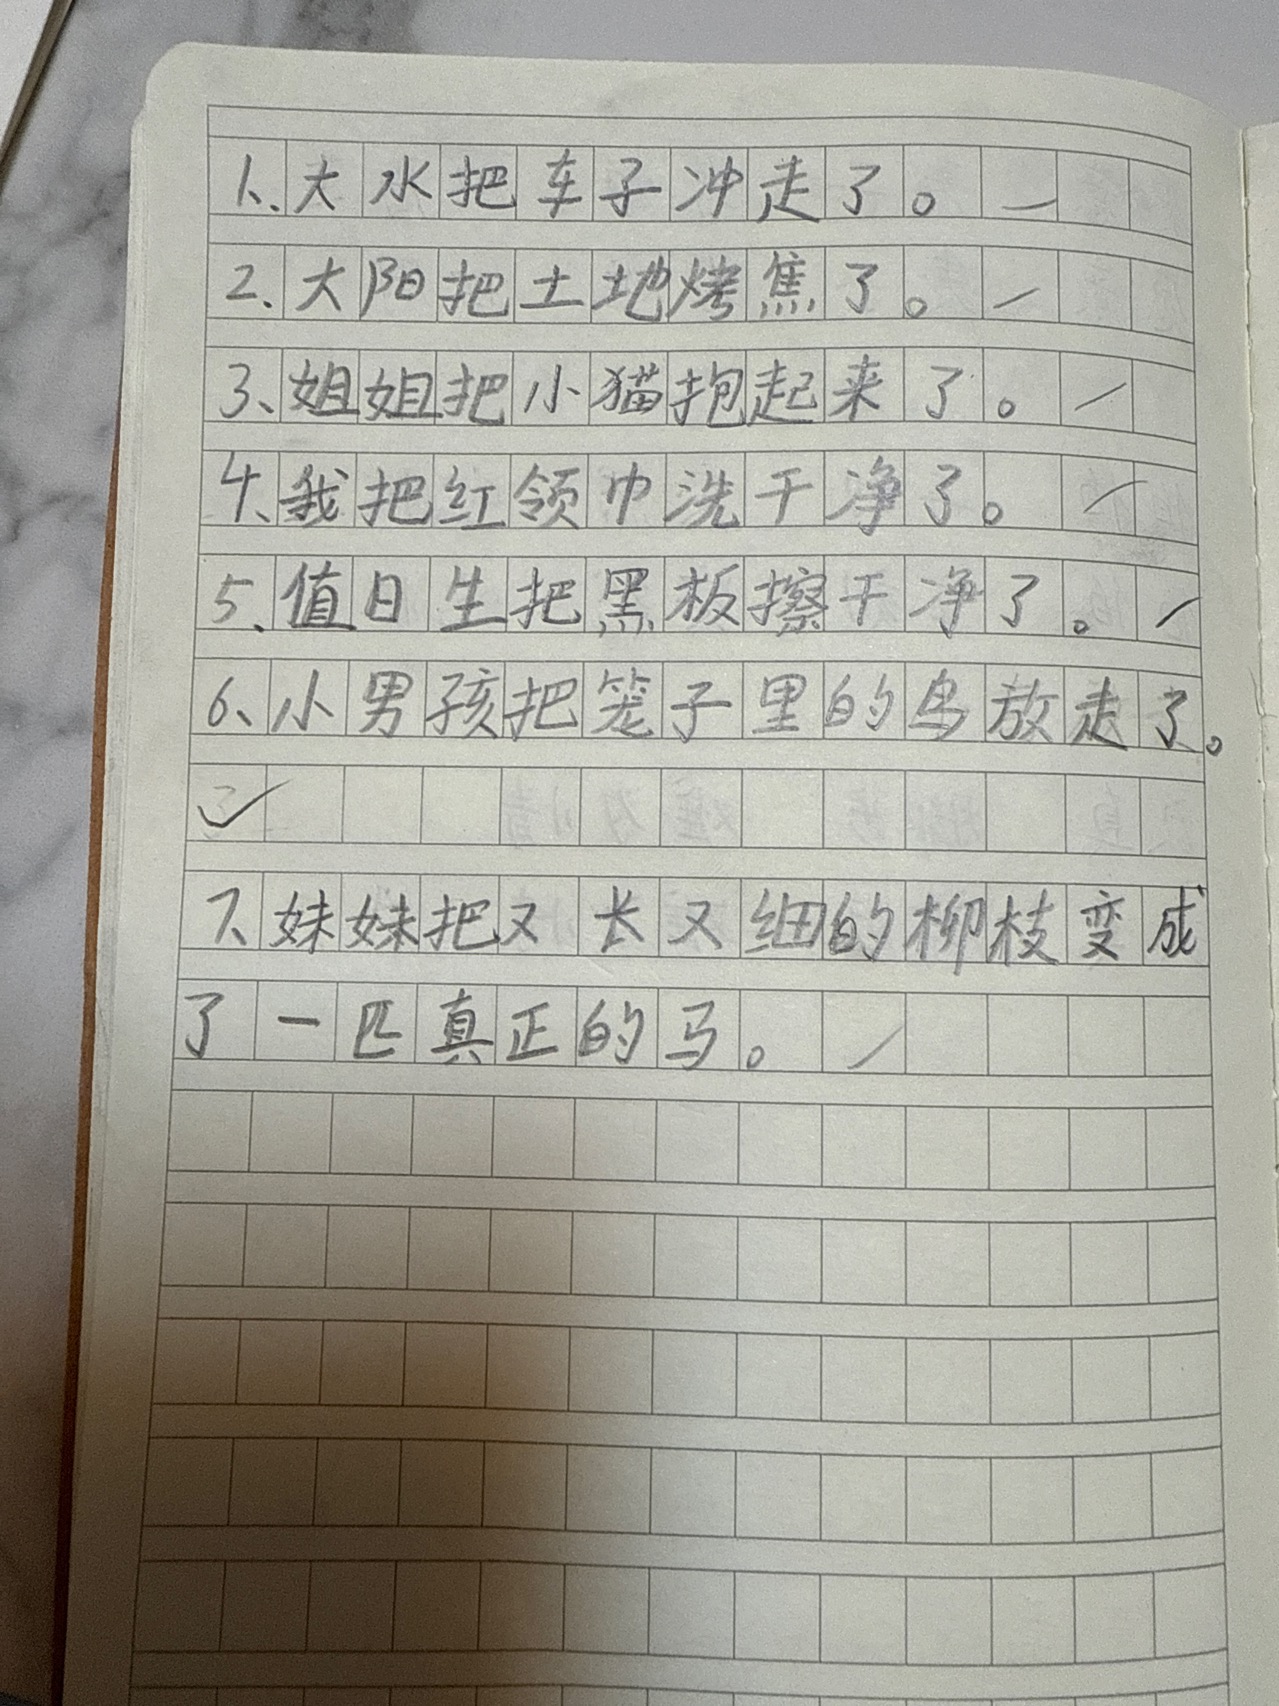 1、大水把车子冲走了。
2、大阳把土地烤焦了。
3、姐姐把小猫抱起来了。
4、我把红领巾洗干净了。
5、值日生把黑板擦干净了。
6、小男孩把笼子里的鸟放走了。
7、妹妹把又长又细的柳枝变成
了一匹真正的马。